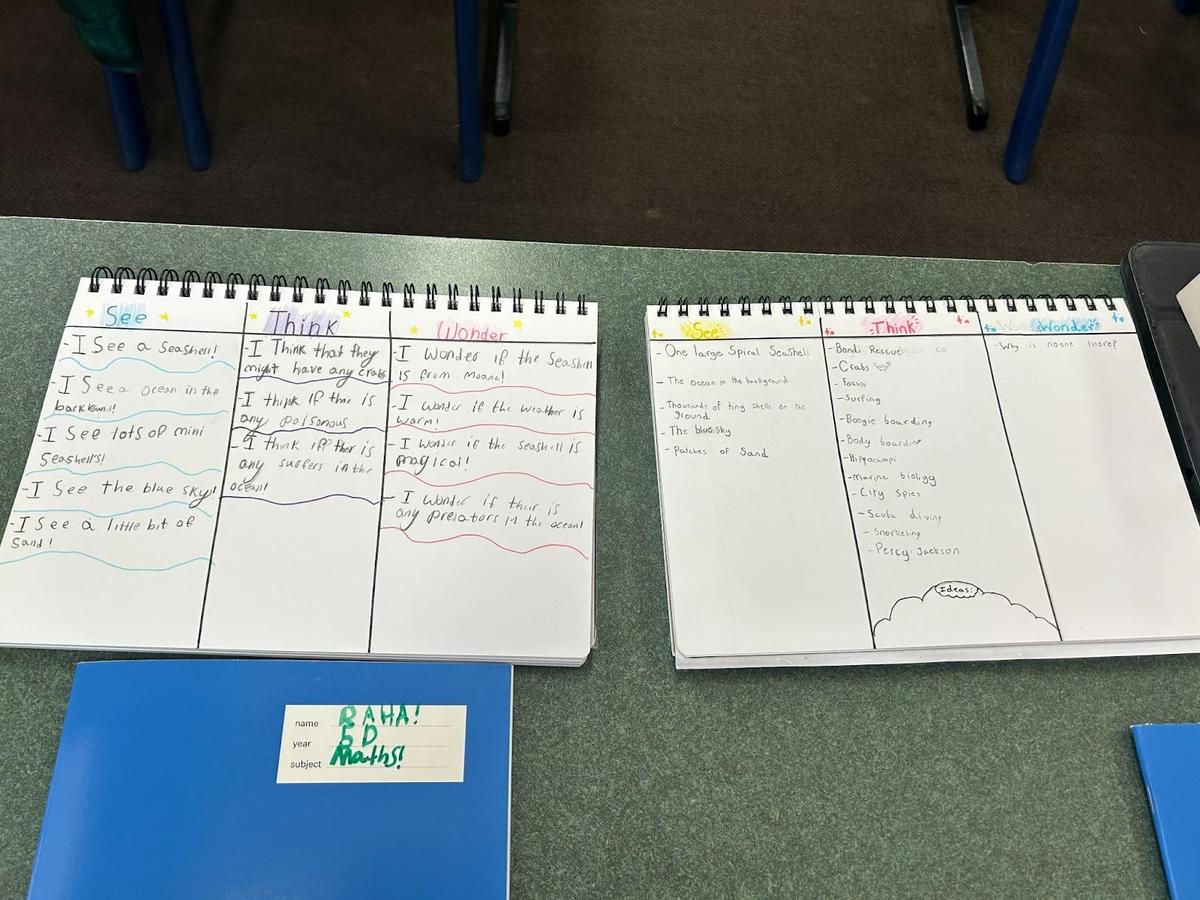 See
-I See a SeaShell!
-I See a ocean in the
backround!
-I See lots of mini
Seashells!
-I See the blue sky!
-I See a little bit of
Sand!
Think
-I Think that they
might have any crabs
-I think if thir is
any poisonous
-I think iff ther is
any surfers in the
ocean!
Wonder
-I wonder if the Seashell
is from Moana!
-I wonder if the weather is
warm!
-I wonder if the seashell is
magical!
-I wonder if their is
any preiators in the ocean!
See
- One large Spiral Seashell
- The ocean in the background
- Thousands of tiny shells on the
ground
- The blue sky
- Patches of Sand
Think
-Bondi Rescue
-Crabs
-Fossils
-Surfing
-Boogie boarding
-Body boarding
-Hippocampi
-marine biology
-City Spies
-Scuba diving
-Snorkeling
-Percy Jackson
Ideas:
Wonder
-Why is noone there?
name RAHA!
year 5D
subject Maths!